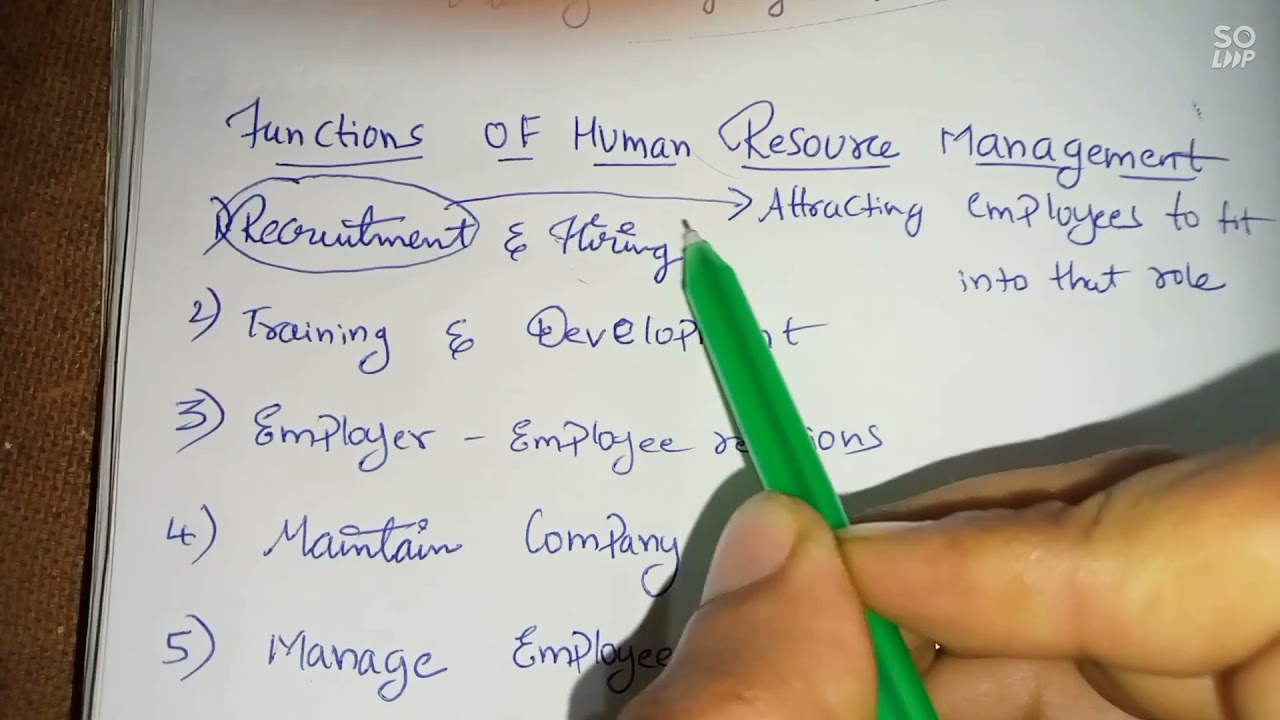 Functions OF Human Resource Management
1) Recruitment & Hiring → Attracting employees to fit
into that role
2) Training & Development
3) Employer - Employee relations
4) Maintain Company
5) Manage Employee
SO
LOOP